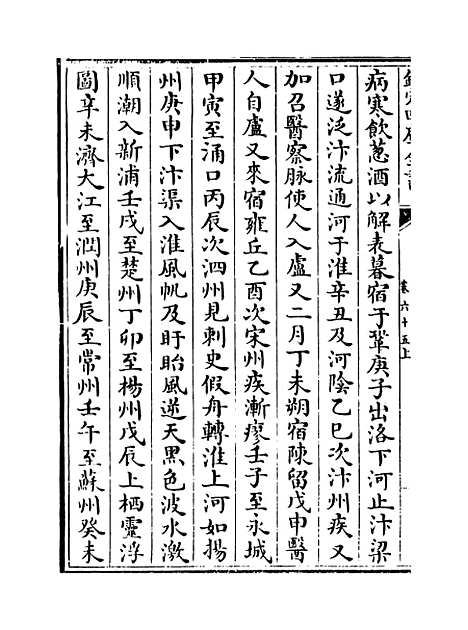 欽定四庫全書
卷六十五上
病寒飲葱酒以解表暮宿于鞏庚子出洛下河止汴梁
口遂泛汴流通河于淮辛丑及河陰乙巳次汴州疾又
加召醫察脉使人入盧又二月丁未朔宿陳留戊申醫
人自盧又來宿雍丘乙酉次宋州疾漸瘳壬子至永城
甲寅至涌口丙辰次泗州見刺史假舟轉淮上河如揚
州庚申下汴渠入淮風帆及盱眙風逆天黑色波水激
順潮入新浦壬戌至楚州丁卯至楊州戊辰上栖靈浮
圖辛未濟大江至潤州庚辰至常州壬午至蘇州癸未